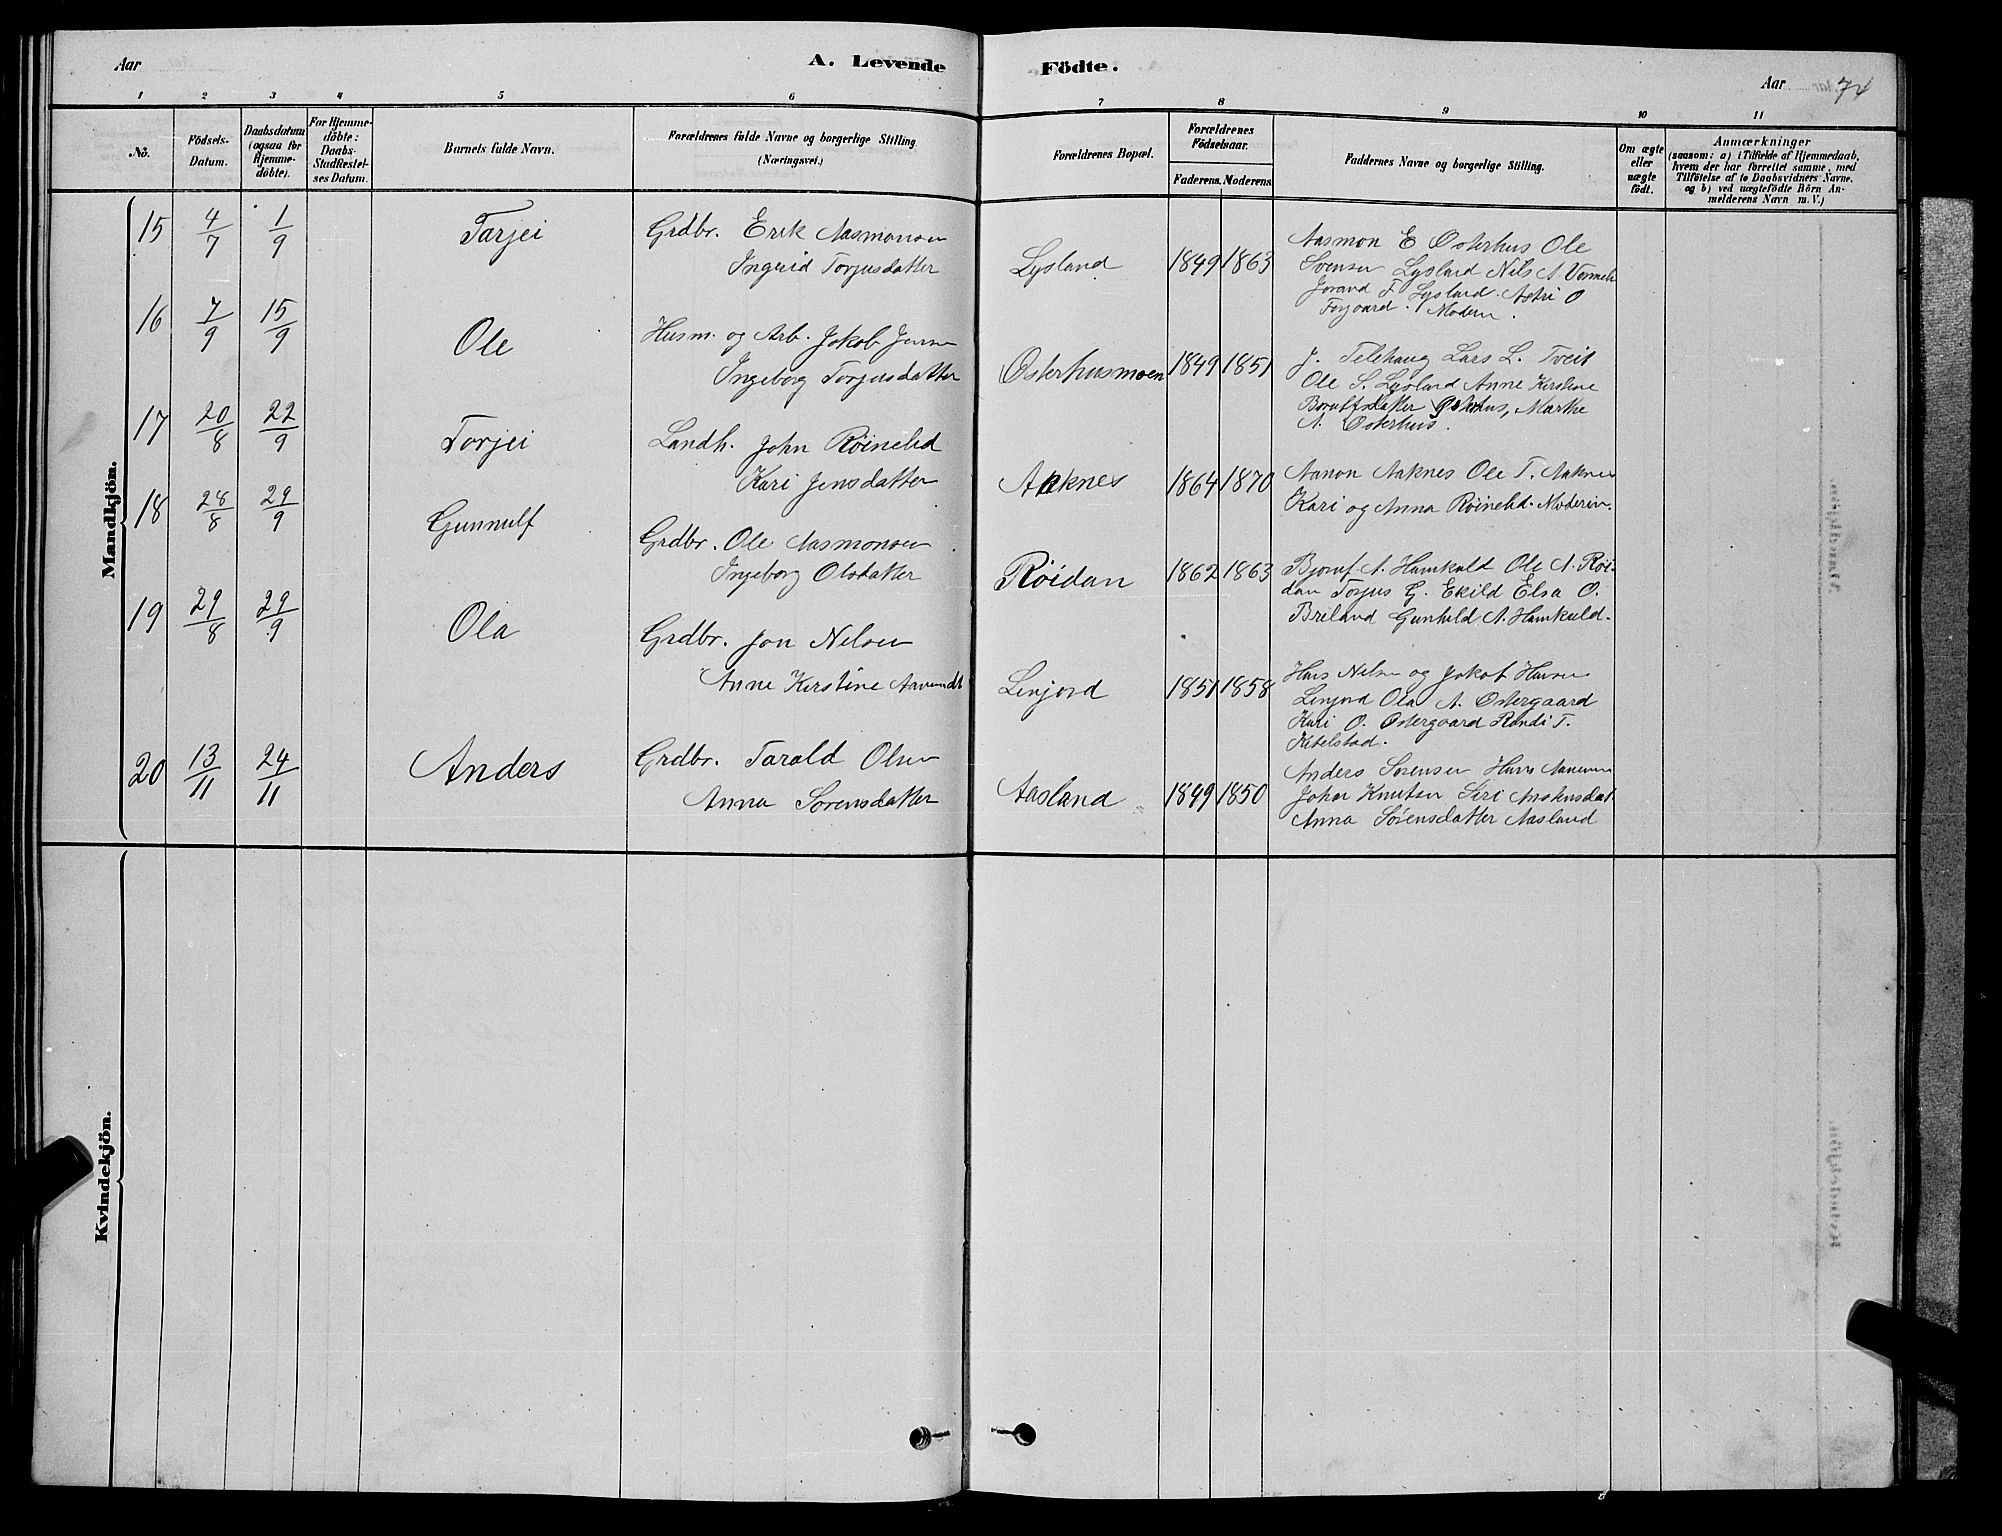 Aar
A. Levende
Födte.
Aar 74
1 2 3 4 5 6 7 8 9 10 11
No.
Födsels-
Datum.
Daabsdatum
(ogsaa for
Hjemme-
döbte).
For Hjemme-
döbte:
Daabs-
Stadfæstel-
ses Datum.
Barnets fulde Navn.
Forældrenes fulde Navne og borgerlige Stilling
(Næringsvei.)
Forældrenes Bopæl.
Forældrenes
Födselsaar.
Faderens. Moderens.
Faddernes Navne og borgerlige Stilling.
Om ægte
eller
uægte
født.
Anmærkninger
(saasom: a) i Tilfælde af Hjemmedaab,
hvem der har forrettet samme, med
Tilföielse af to Daabsvidners Navne.
og b) ved uægtefödte Börn An-
melderens Navn m. V.)
Mandkjön.
15 4/7 1/9 Tarjei Grdbr. Erik Aasmonsen
Ingerid Torjusdatter
Lysland 1849 1863
Aasmon E Osterhus Ole
Svensen Lysland Nils A
Jorand T Lysland. Astri O
Modern.
16 7/9 15/9 Ole Husm. og Arb. Jokob Jensen
Ingeborg Torjusdatter
Osterhusmoen 1849 1851
J. Telehaug Lars L. Tveit
Ole S. Lysland Anne Kirstine
datter Osterhus, Marthe
A. Osterhus.
17 20/8 22/9 Torjei Landh. John Röinelid
Kari Jensdatter
Aaknes 1864 1870
Aanon Aaknes Ole T. Aaknes
Kari og Anna Röinelid. Moderen.
18 28/8 29/9 Gunnulf Grdbr. Ole Aasmonsen
Ingeborg Olsdatter
Röidan 1862 1863
A. Humkuld Ole A. Röi-
dan Torjus G. Ekild Elsa O.
Breland Gunhild A. Hamkuld.
19 29/8 29/9 Ola Grdbr. Jon Nelsen
Anne Kirstine
Linjord 1851 1858
Hans Nelsen og Jakob Hansen
Linjord Ola A. Ostergaard
Kari O. Ostergaard Randi T.
Ketelstad.
20 13/11 24/11 Anders Grdbr. Tarald Olsen
Anna Sorensdatter
Aasland 1849 1850
Anders Sorensen Hans
Johan Knutsen Siri
Anna Sörensdatter Aasland
Kvindekjön.